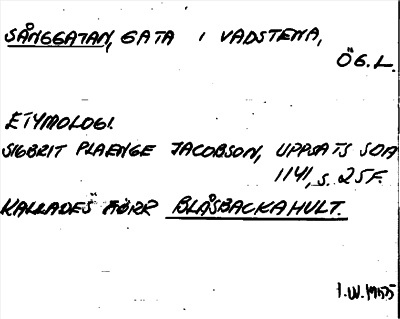 SÅNGGATAN, GATA I VADSTENA,
ÖG.L.
ETYMOLOGI.
SIGBRIT PLAENGE JACOBSON, UPPSATS SOA
1141, S. 25F.
KALLADES FÖRR BLÅSBACKAHULT.